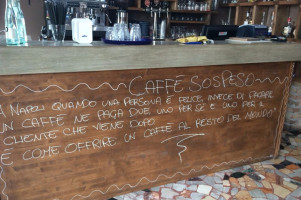 CAFFÈ SOSPESO
A NAPOLI QUANDO UNA PERSONA È FELICE INVECE DI PAGARE
UN CAFFÈ NE PAGA DUE UNO PER SÉ E UNO PER IL
CLIENTE CHE VIENE DOPO
È COME OFFRIRE UN CAFFÈ AL RESTO DEL MONDO